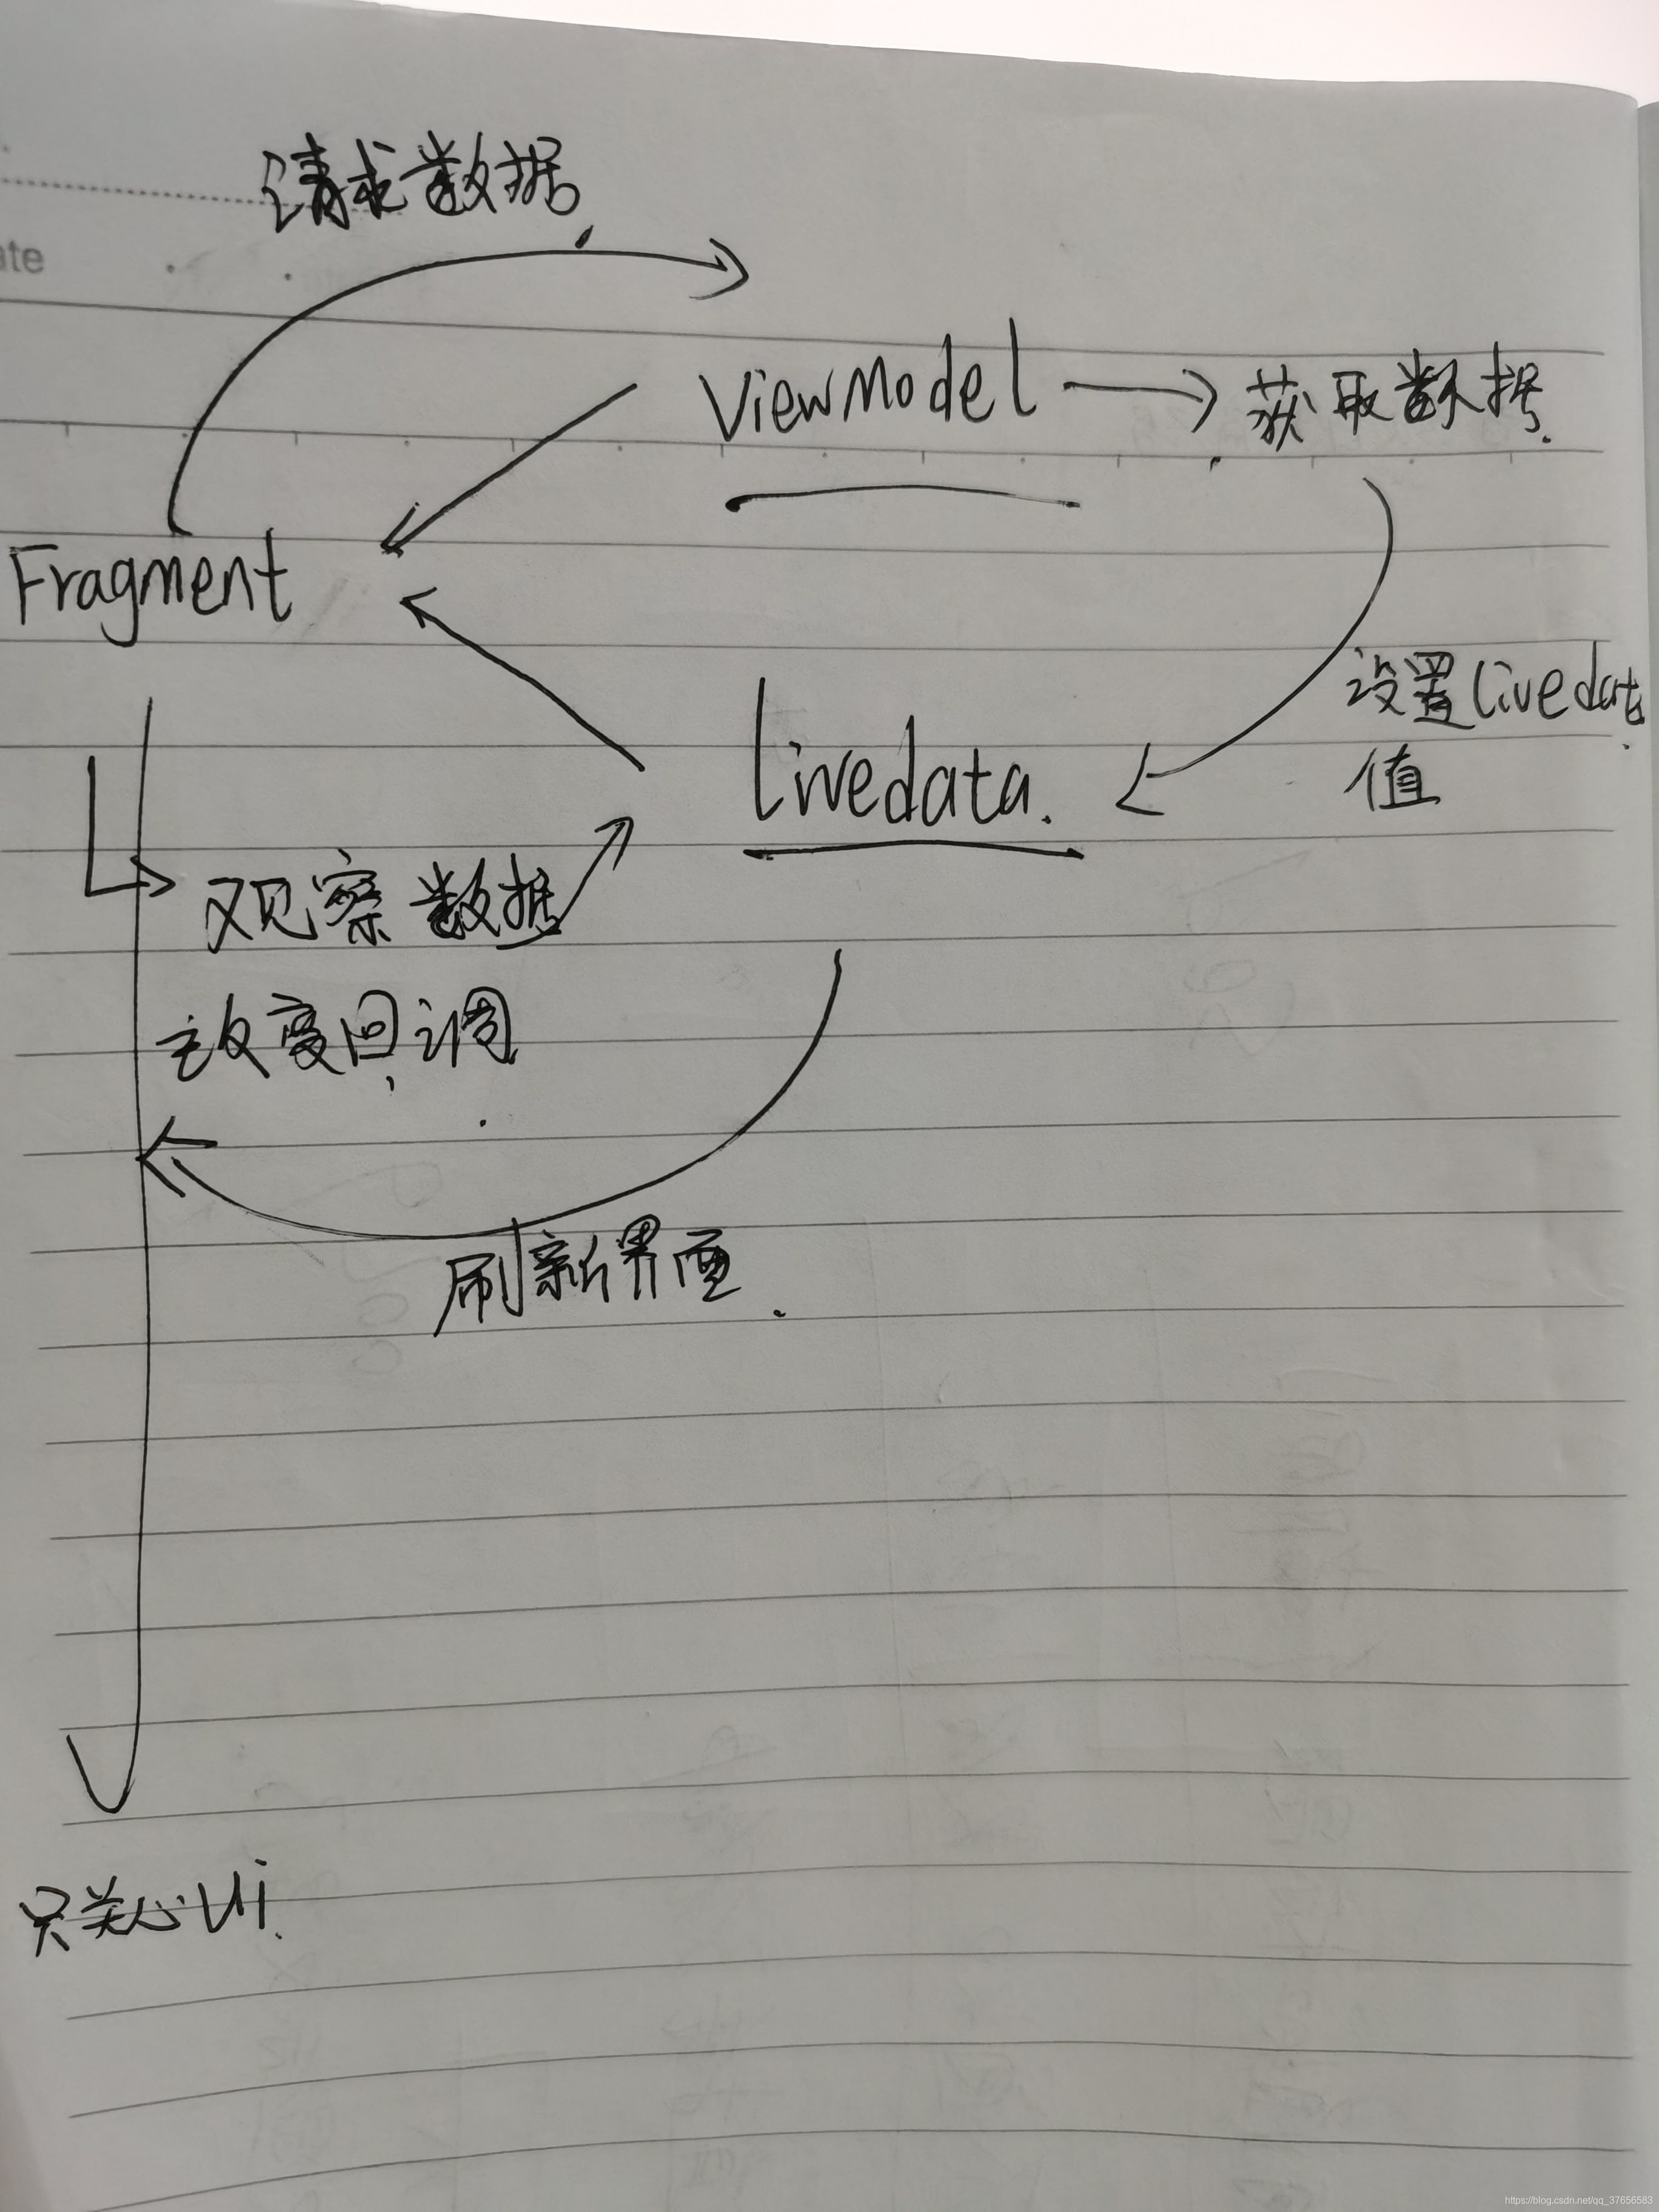 请求数据
ate
ViewModel
获取数据.
Fragment
设置livedata
值
livedata.
观察数据
改变回调
刷新界面.
只关心Ui.
https://blog.csdn.net/qq_37656583